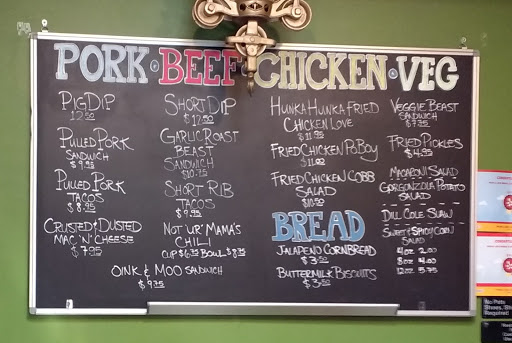 PORK • BEEF • CHICKEN • VEG
PIG DIP
12.50
PULLED PORK
SANDWICH
$9.95
PULLED PORK
TACOS
$8.95
CRUSTED & DUSTED
MAC 'N' CHEESE
$7.95
SHORT DIP
$12.50
GARLIC ROAST
BEAST
SANDWICH
$10.75
SHORT RIB
TACOS
$9.95
NOT 'UR' MAMA'S
CHILI
CUP $6.75 BOWL $8.75
OINK & MOO SANDWICH
$9.75
HUNKA HUNKA FRIED
CHICKEN LOVE
$11.95
FRIED CHICKEN PO BOY
$11.00
FRIED CHICKEN COBB
SALAD
$10.50
BREAD
JALAPENO CORNBREAD
$3.50
BUTTERMILK BISCUITS
$3.50
VEGGIE BEAST
SANDWICH
$7.75
FRIED PICKLES
$4.95
MACARONI SALAD
GORGONZOLA POTATO
SALAD
DILL COLE SLAW
SWEET & SPICY CORN
SALAD
4 OZ 2.00
8 OZ 4.00
12 OZ 5.75
No Pets
Shoes, Sh
Required!